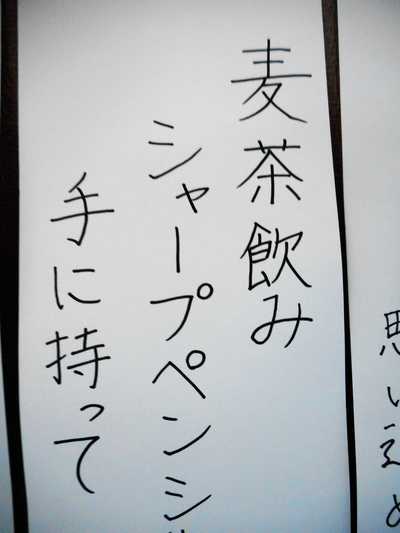 麦茶飲み
シャープペンシ
手に持って